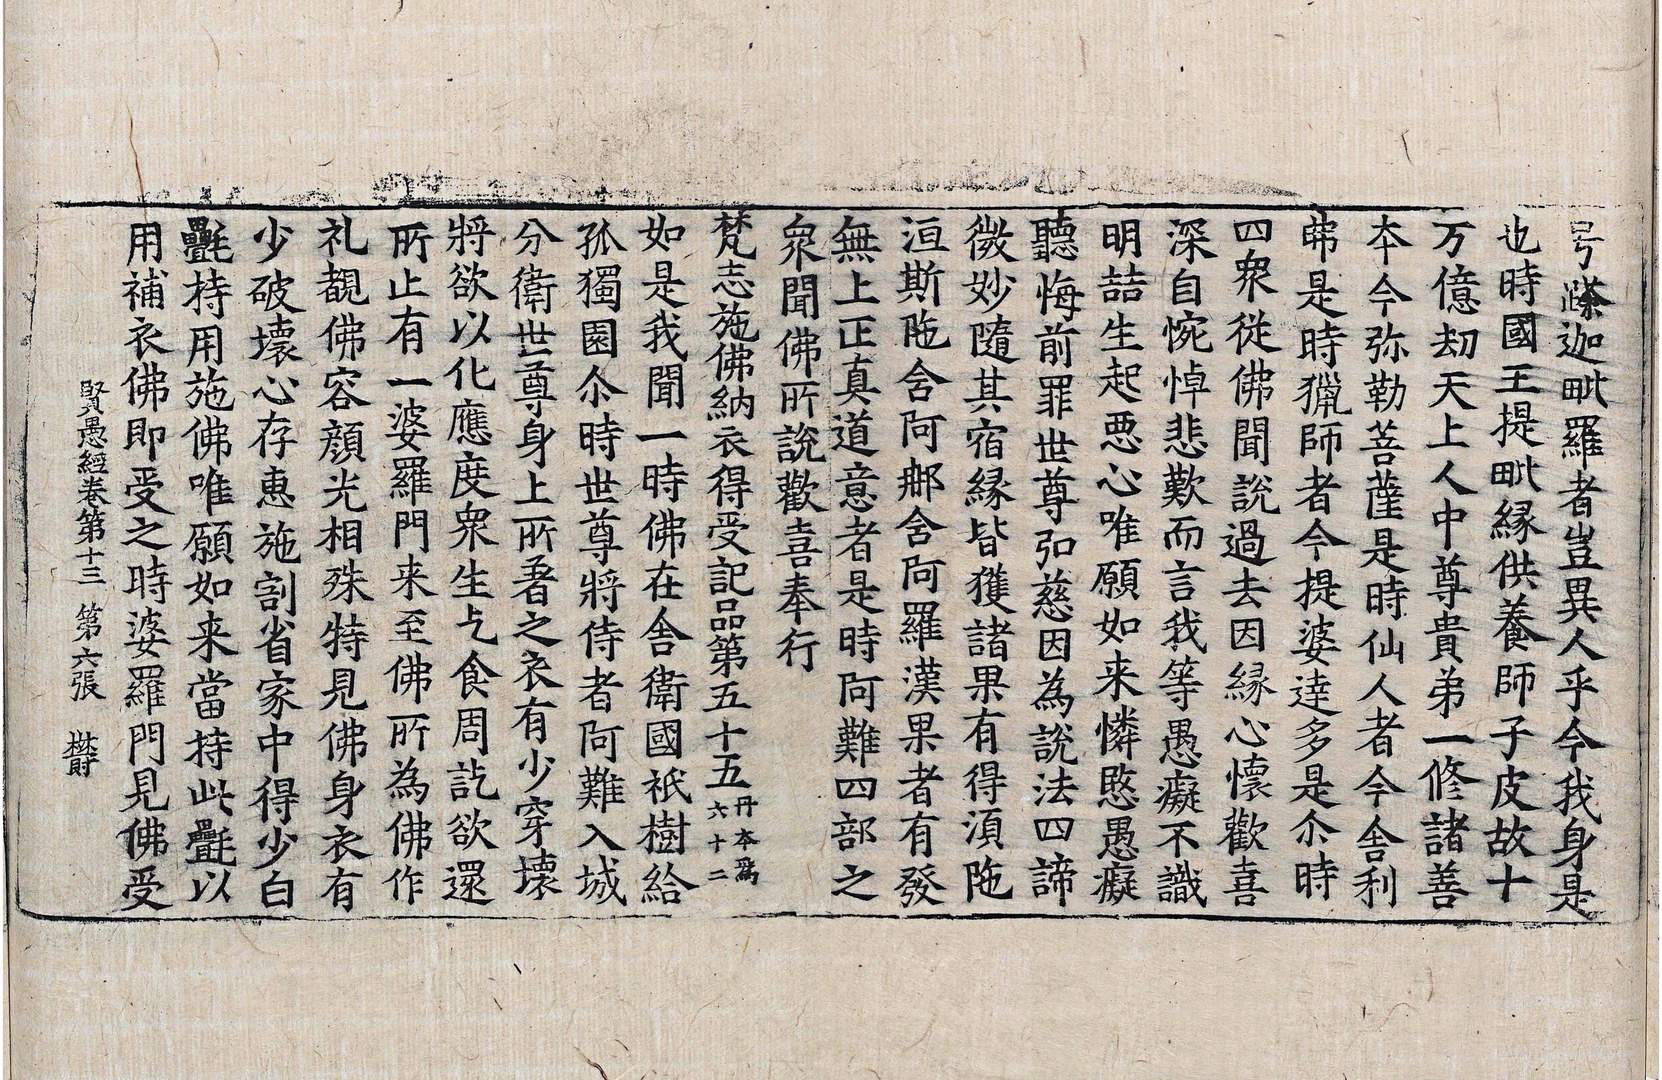 号䥷迦毗羅者豈異人乎今我身是
也時國王提毗縁供養師子皮故十
万億劫天上人中尊貴弟一修諸善
夲今弥勒菩薩是時仙人者今舍利
弗是時獵師者今提婆達多是尒時
四衆從佛聞說過去因縁心懷歡喜
深自惋悼悲歎而言我等愚癡不識
明喆生起悪心唯願如来憐愍愚癡
聽悔前罪世尊弘慈因為說法四諦
微妙隨其宿縁皆獲諸果有得湏陁
洹斯陁含阿郍含阿羅漢果者有發
無上正真道意者是時阿難四部之
衆聞佛所說歡喜奉行
梵志施佛納衣得受記品第五十五 丹本爲六十二
如是我聞一時佛在舍衛國祇樹給
孤獨園尒時世尊將侍者阿難入城
分衛世尊身上所著之衣有少穿壞
將欲以化應度衆生乞食周訖欲還
所止有一婆羅門来至佛所為佛作
礼覩佛容顔光相殊特見佛身衣有
少破壞心存惠施割省家中得少白
㲲持用施佛唯願如来當持此㲲以
用補衣佛即受之時婆羅門見佛受
賢愚經卷第十三 第六張 欝